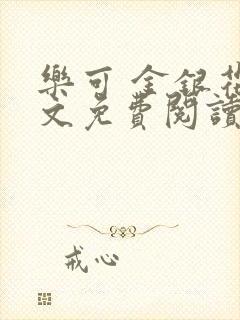 樂可 金銀花
文免費閱讀
戒心